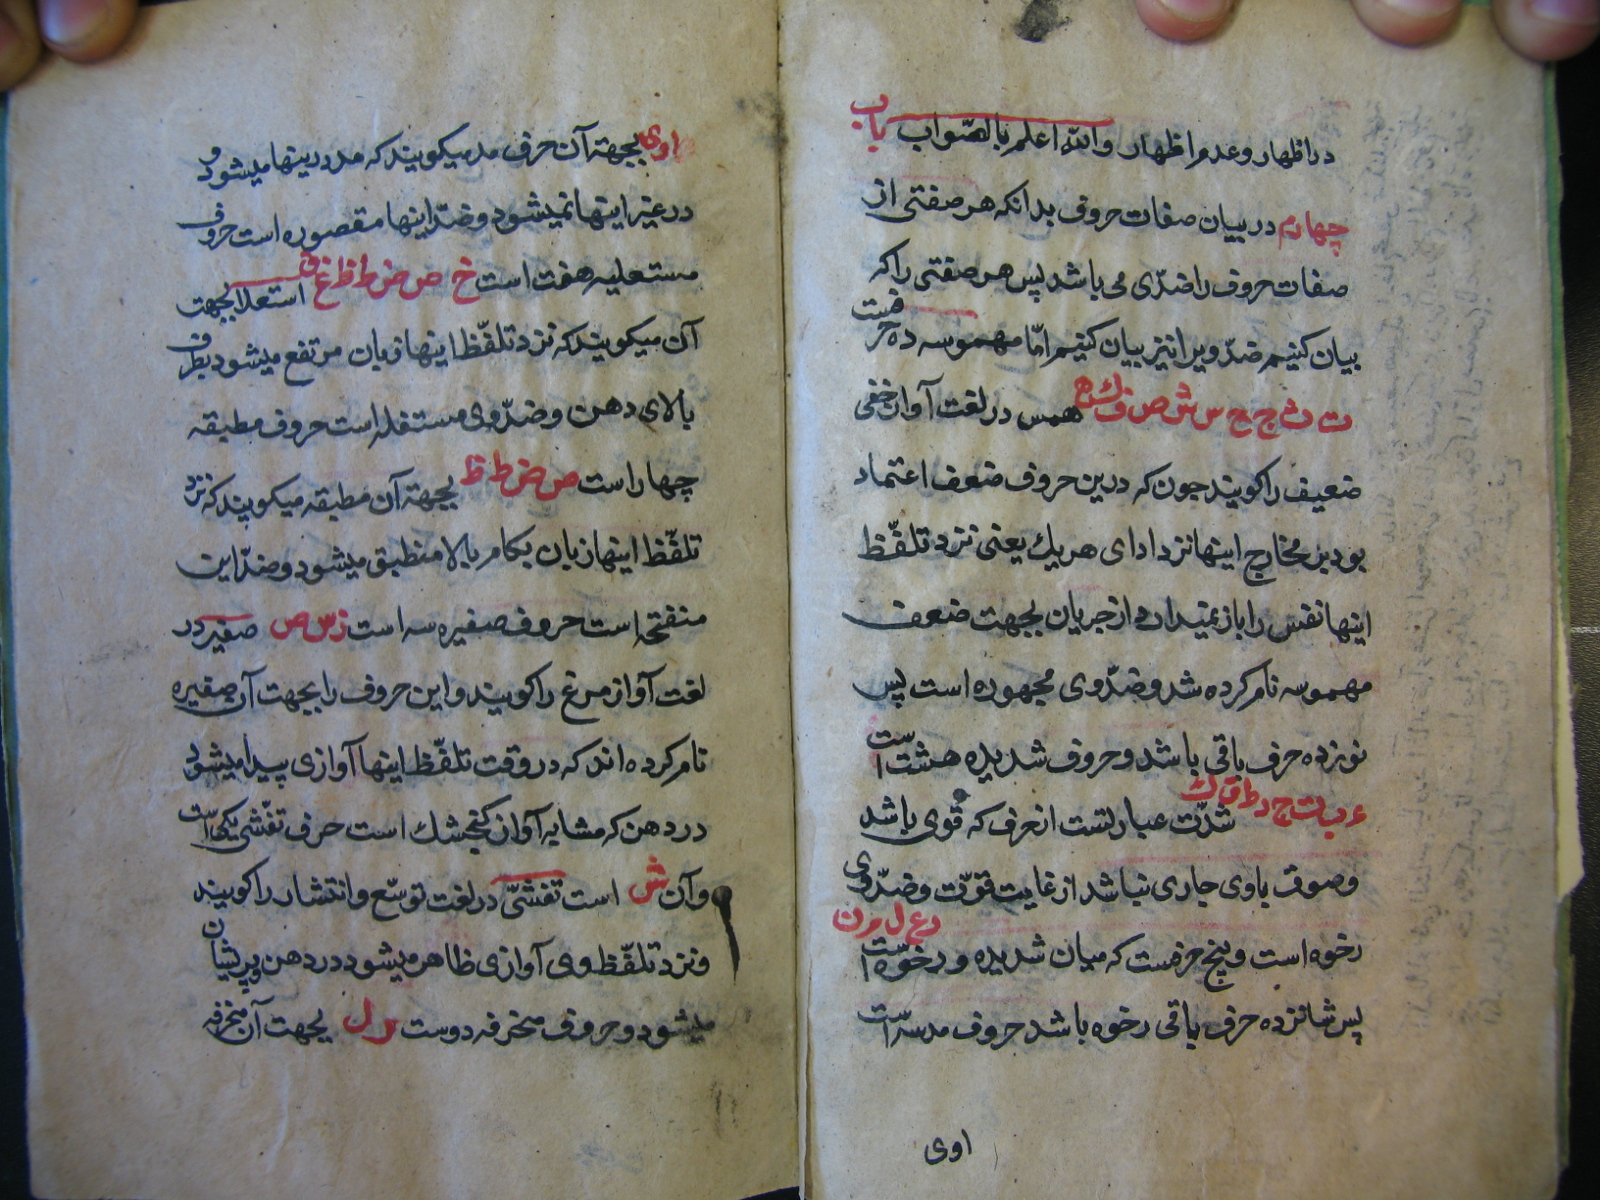 در اظهار و عدم اظهار والله اعلم بالصواب باب
چهارم در بیان صفات حروف بدانکه هر صفتی از
صفات حروف را ضدّی می باشد پس هر صفتی را که
بیان کنیم ضدّ ویرا نیز بیان کنیم امّا مهموسه ده حرفست
ت ث ح خ س ش ص ف ك ه همس در لغت آواز خفی
ضعیف را کویند جون که درین حروف ضعف اعتماد
بود بر مخارج اینها نزد ادای هریك یعنی نزد تلفّظ
اینها نفس را باز نمیدارد از جریان بجهت ضعف
مهموسه نام کرده شد و ضدّ وی مجهوره است پس
نوزده حرف باقی باشد و حروف شدیده هشت است
ء ب ت ج د ط ق ك شدّت عبارتست از حرف که قوی باشد
وصوت باوی جاری نباشد از غایت قوّت و ضدّ وی
رخوه است و پنج حرفست که میان شدیده و رخوه است ر ع ل م ن
پس شانزده حرف باقی رخوه باشد حروف مد سه است
اوی
اوی بجهة آن حرف مد میکویند که مد درینها میشود و
در غیر اینها نمیشود و ضدّ اینها مقصوره است حروف
مستعلیه هفت است خ ص ض ط ظ غ ق استعلا بجهت
آن میکویند که نزد تلفّظ اینها زبان مرتفع میشود بطرف
بالای دهن و ضدّ وی مستفله است حروف مطبقه
چهار است ص ض ط ظ بجهة آن مطبقه میکویند که نزد
تلفّظ اینها زبان بکام بالا منطبق میشود و ضدّ این
منفتحه است حروف صفیره سه است ز س ص صفیر در
لغت آواز مرغ را کویند و این حروف را بجهت آن صفیره
نام کرده اند که در وقت تلفّظ اینها آوازی پیدا میشود
در دهن که مشابه آواز کنجشك است حرف تفشّی یکی است
وآن ش است تفشّی در لغت توسّع و انتشار را کویند
و نزد تلفّظ وی آوازی ظاهر میشود در دهن پریشان
میشود و حروف منحرفه دوست ر ل بجهت آن منحرفه